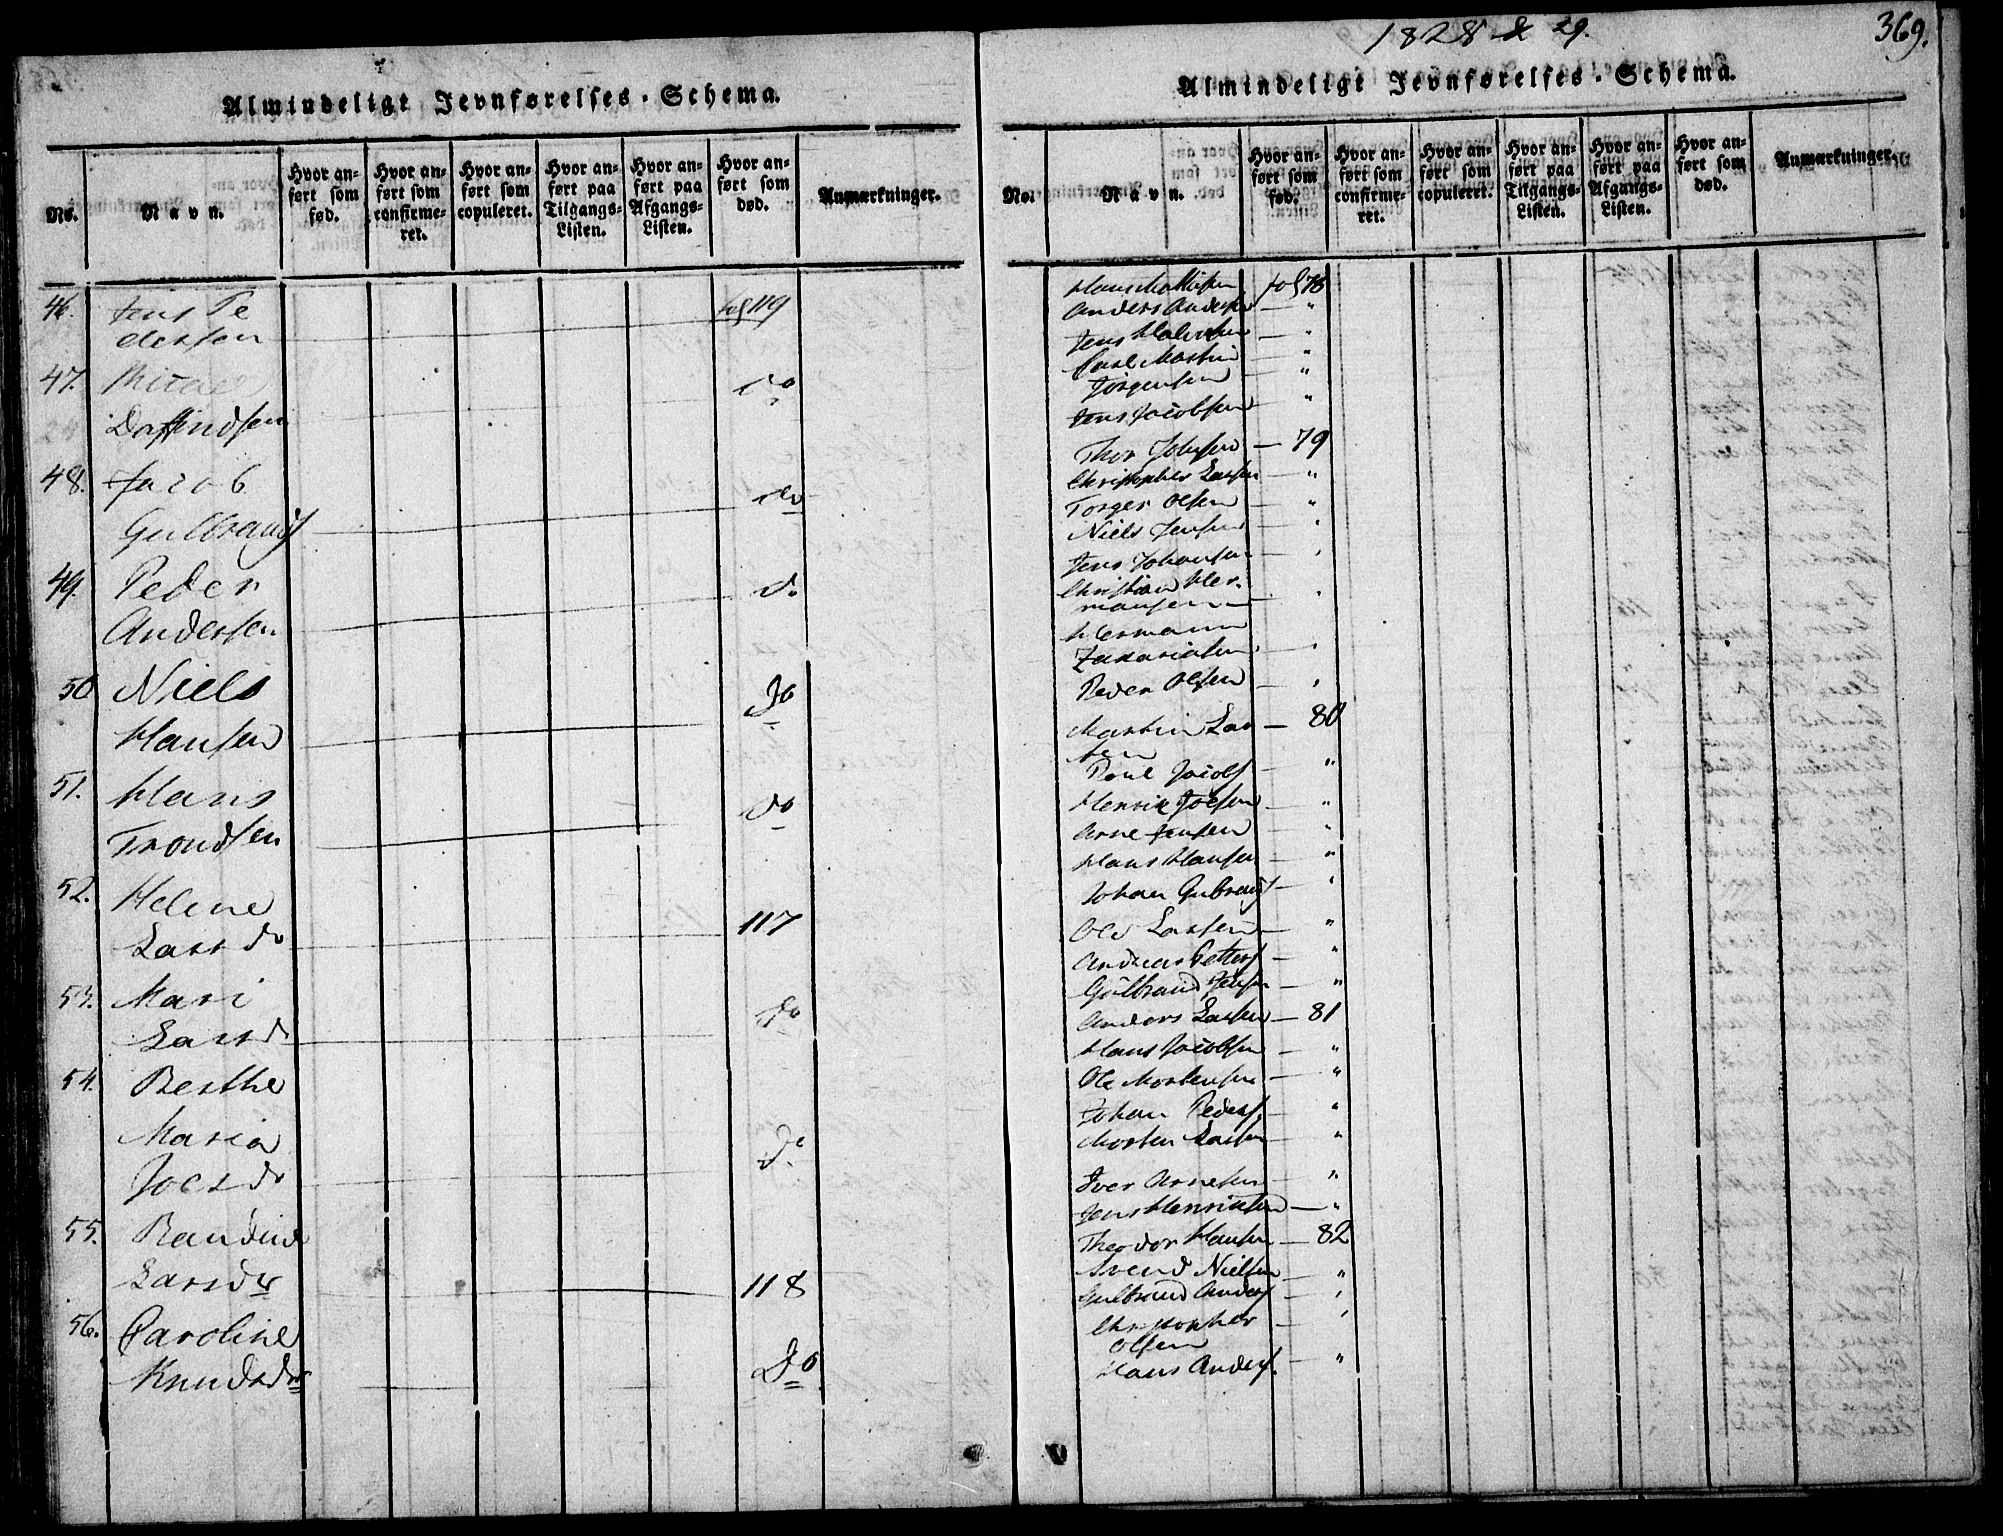 1828 & 29.
369.
Almindeligt Jevnførelses-Schema.
No.
Navn.
Hvor anført som fød.
Hvor anført som confirmeret.
Hvor anført som copuleret.
Hvor anført paa Tilgangs-Listen.
Hvor anført paa Afgangs-Listen.
Hvor anført som død.
Anmærkninger.
46. Jens Pe fol 119
dersen
47. do
48. Jacob do
Gulbrands
49. Peder do
Andersen
50 Niels Do
Hansen
51. Hans do
Trondsen
52. Helene 117
Larsd
53. Mari do
Larsd
54. Berthe
Maria do
Joensd
55. Randine
Larsdr 118
56. Caroline
Knudsdr Do
Almindeligt Jevnførelses-Schema.
No.
Navn.
Hvor anført som fød.
Hvor anført som confirmeret.
Hvor anført som copuleret.
Hvor anført paa Tilgangs-Listen.
Hvor anført paa Afgangs-Listen.
Hvor anført som død.
Anmærkninger.
Hans Mathisen fol 78
Anders Andersen — "
Jens Halvorsen — "
Carl Martin — "
Jörgensen "
Jens Jacobsen "
Thor Johnsen — 79
Christopher Larsen — "
Torger Olsen — "
Niels Jensen "
Jens Johansen — "
Christian Her-
mansen — "
Hermann
Zakariasen "
Peder Olsen — "
Martin Lar — 80
sen
Poul Jacobs — "
Henrik Joensen — "
Arne Jensen — "
Hans Hansen — "
Johan Gulbrands — "
Ole Larsen — "
Andreas Petters — "
Gulbrand — "
Anders Larsen — 81
Hans Jacobsen — "
Ole Mortensen — "
Johan Peders — "
Morten Larsen — "
Iver Arnesen — "
Jens Henriksen — "
Theodor Hansen — 82
Svend Nielsen — "
Gulbrand Anders — "
Christopher — "
Olsen
Hans Anders. — "